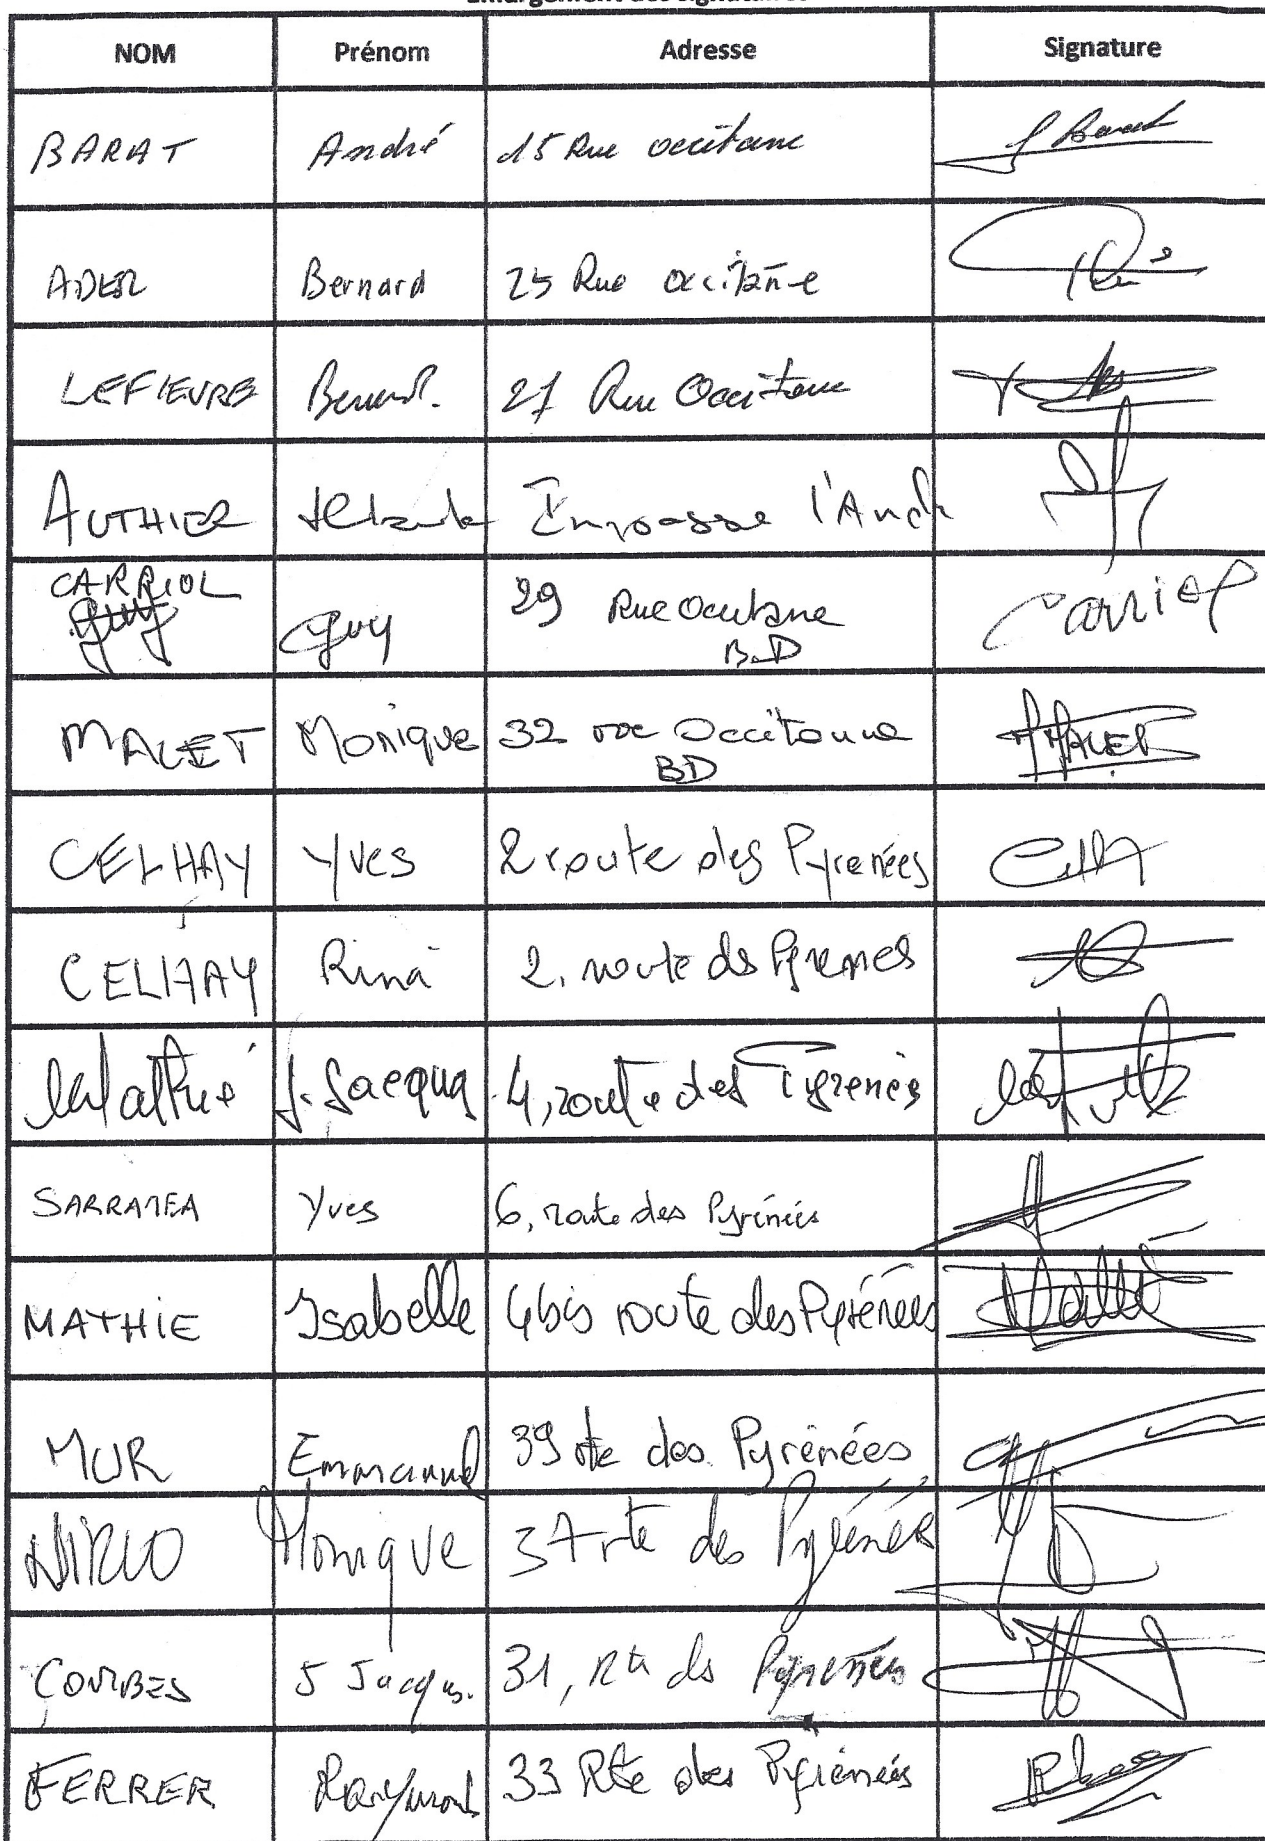 NOM Prénom Adresse Signature
BARAT André 15 Rue occitane Barat
ADER Bernard 25 Rue occitane
LEFIEVRE Bernard. 27 Rue Occitane
AUTHIER Impasse l'Auch
CARRIOL
Guy Guy 29 Rue Occitane Carriol
B.D
MALET Monique 32 rue Occitanne M MALET
BD
CELHAY Yves 2 route des Pyrenées
CELHAY Rina 2, route ds Pyrenees
J. Jacques 4, route des Pyrenées
SARRATEA Yves 6, route des Pyrénées
MATHIE Isabelle 4bis route des Pyrénées
MUR Emmanuel 39 rte des Pyrénées
Monique 37 rte des Pyrénées
COMBES J Jacques. 31, Rte ds Pyrenées
FERRER Raymond 33 Rte des Pyrénées